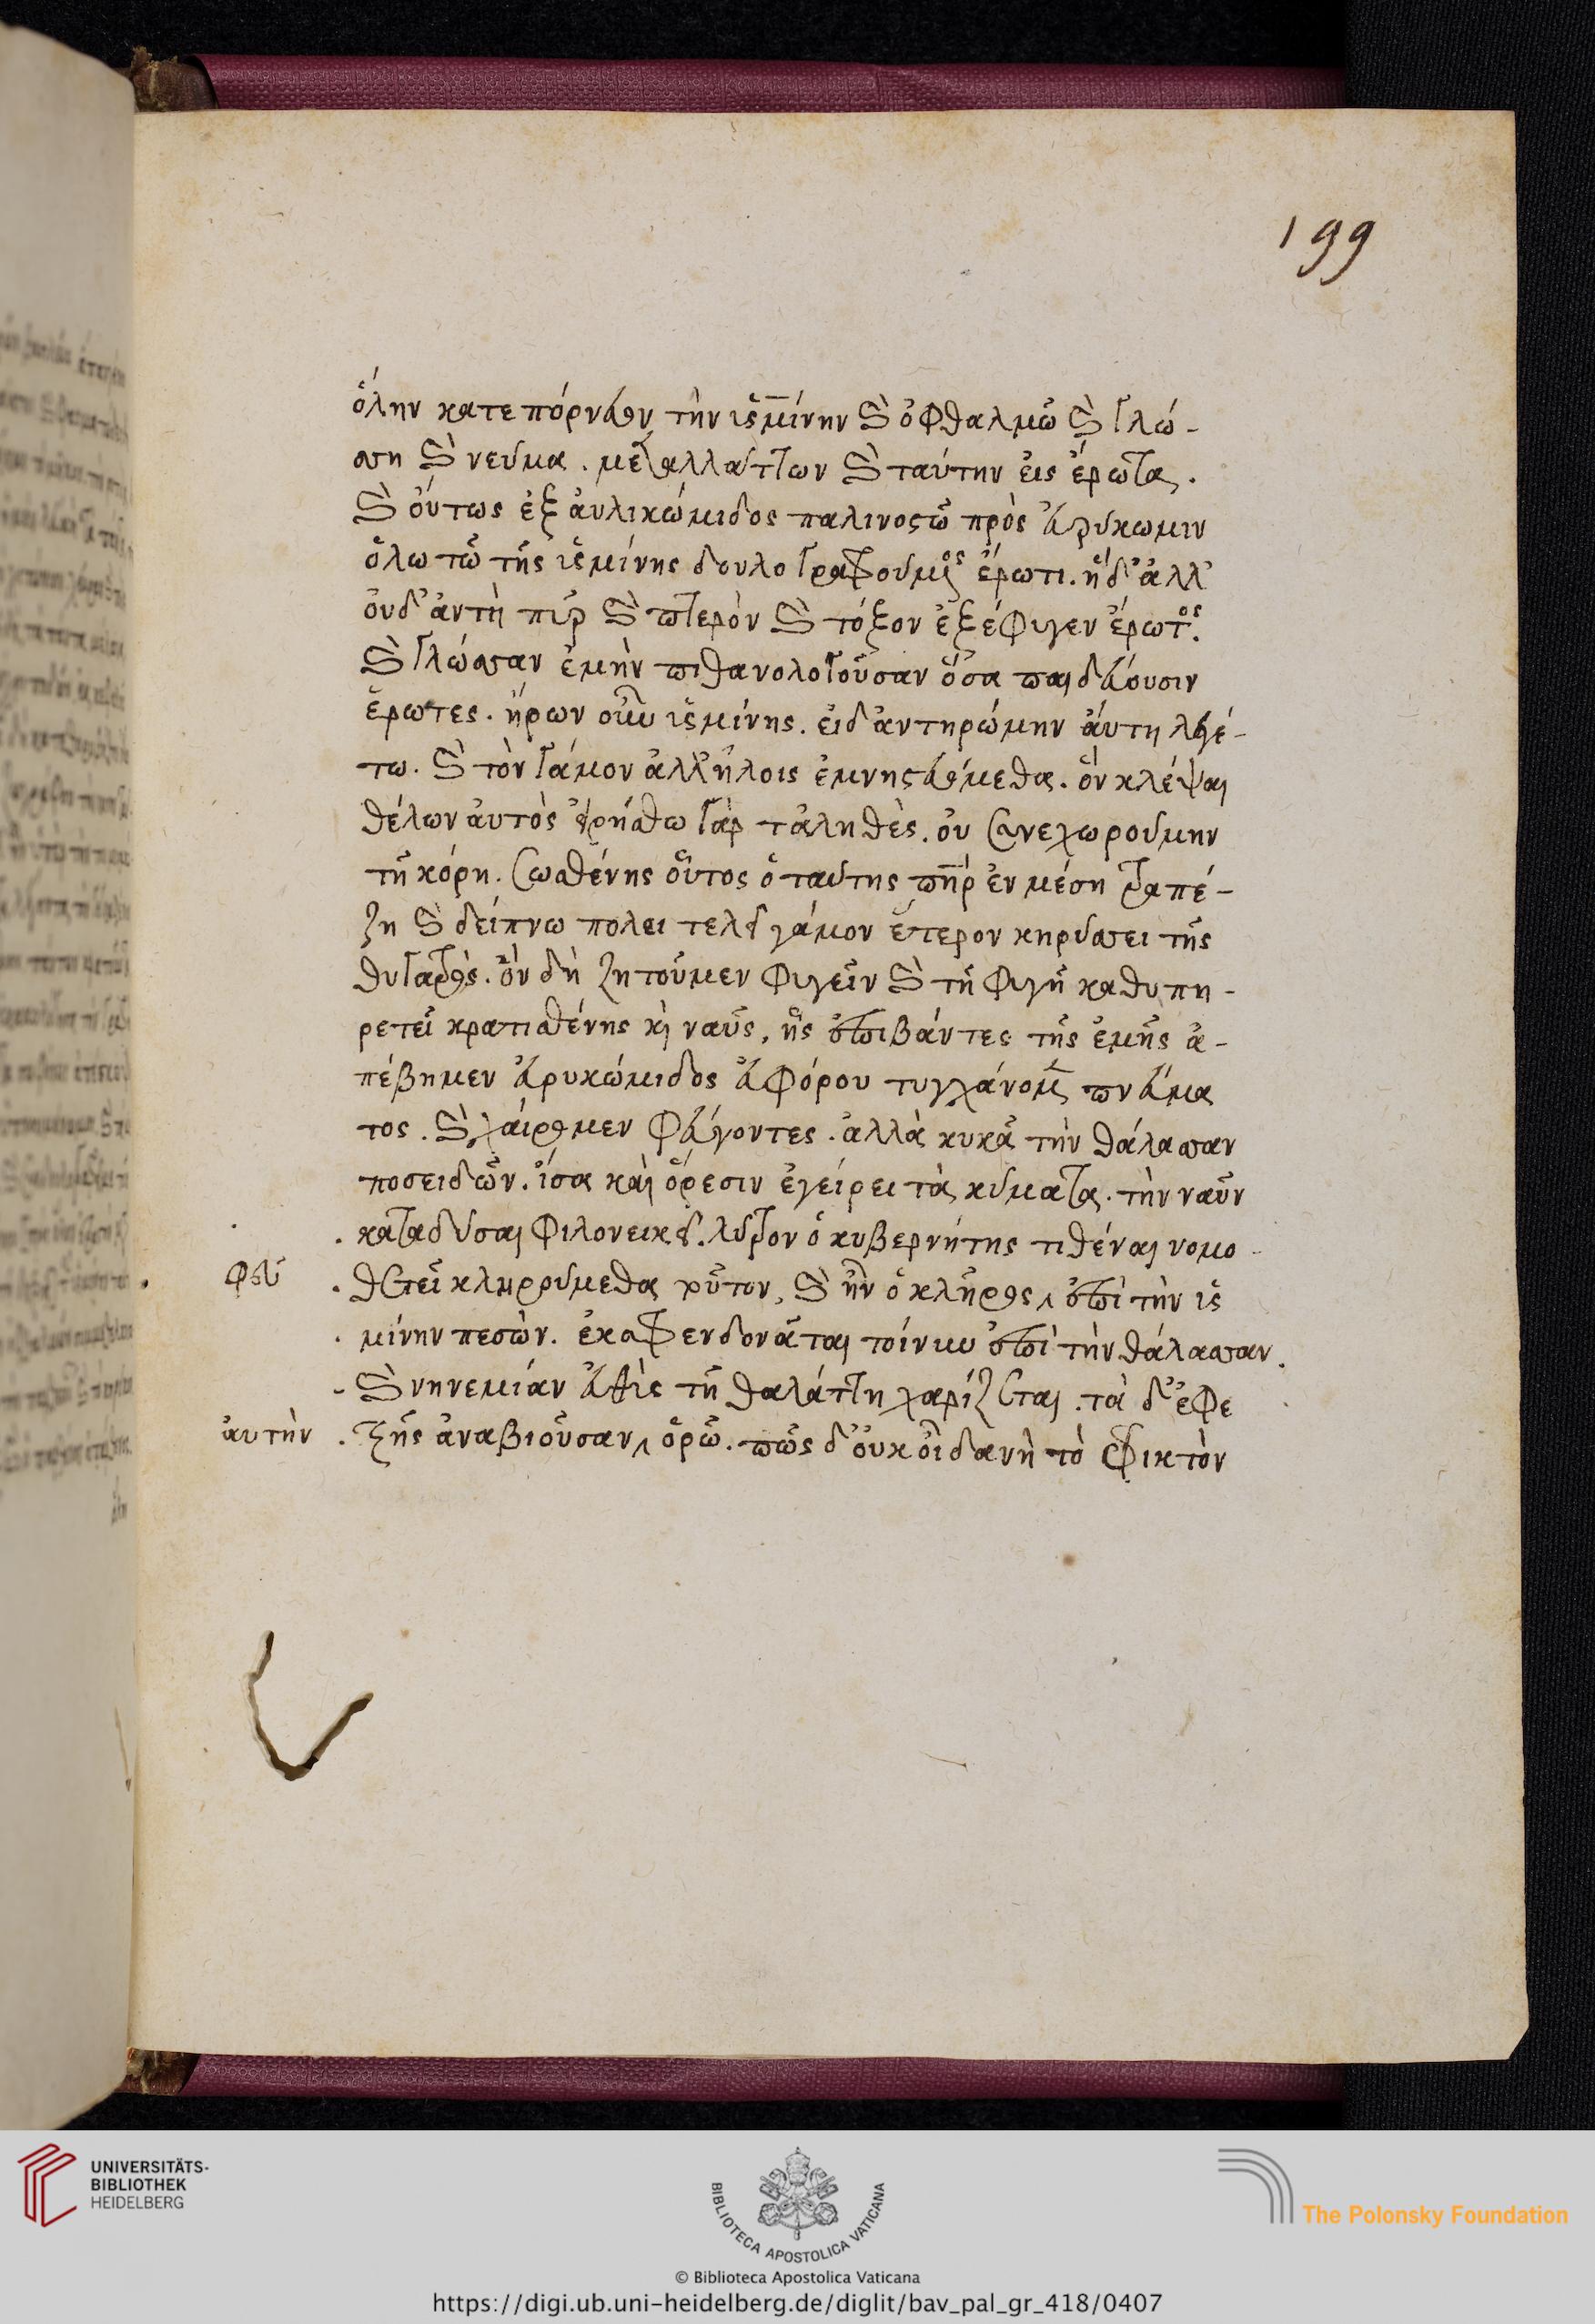 199
ὅλην κατεπόρνευον τὴν ἰσμίνην καὶ ὀφθαλμῶ καὶ γλώ-
σση καὶ νεύμα. μεταλλάττων καὶ ταύτην εἰς ἔρωτα.
καὶ οὕτως ἐξ ἀυλικώμιδος παλινοστῶ πρὸς ἐυρύκωμιν
ὅλω τῶ τῆς ἰσμίνης δουλογραφούμενος ἔρωτι. ἡ δ' ἀλλ'
ὀυδ' ἀυτὴ πῦρ καὶ πτερὸν καὶ τόξον ἐξέφυγεν ἔρωτος.
καὶ γλώσσαν ἐμὴν πιθανολογοῦσαν ὅσα παιδεύουσιν
ἔρωτες. ἤρων οὖν ἰσμίνης. εἰ δ' ἀντηρώμην ἀυτὴ λεγέ-
τω. καὶ τὸν γάμον ἀλλήλοις ἐμνηστευόμεθα. ὃν κλέψαι
θέλων ἀυτὸς εἰρήσθω γὰρ τἀληθὲς. οὐ συνεχωρούμην
τῆ κόρη. σωσθένης οὗτος ὁ ταύτης πατὴρ ἐν μέση τραπέ-
ζη καὶ δείπνω πολυτελεῖ γάμον ἕτερον κηρύσσει τῆς
θυγατρὸς. ὃν δὴ ζητοῦμεν φυγεῖν καὶ τῆ φυγῆ καθυπη-
ρετεῖ κρατισθένης καὶ ναῦς, ἧς ἐπιβάντες τῆς ἐμῆς ἀ-
πέβημεν ἐυρυκώμιδος ἐυφόρου τυγχάνομεν πνεύμα
τος. καὶ χαίρομεν φεύγοντες. ἀλλὰ κυκᾶ τὴν θάλασσαν
ποσειδῶν. ἴσα καὶ ὄρεσιν ἐγείρει τὰ κύματα. τὴν ναῦν
καταδῦσαι φιλονεικεῖ. λύτρον ὁ κυβερνήτης τιθέναι νομο-
φεῦ
θετεῖ κληρούμεθα τοῦτον, καὶ ἦν ὁ κλῆρος ἐπὶ τὴν ἰσ
μίνην πεσὼν. ἐκσφενδονᾶται τοίνυν ἐπὶ τὴν θάλασσαν.
καὶ νηνεμίαν εὐθὺς τῆ θαλάττη χαρίζεται. τὰ δ' ἐφε
ἀυτὴν
ξῆς ἀναβιοῦσαν ὁρῶ. πῶς δ' οὐκ οἶδα νὴ τὸ φρικτὸν
UNIVERSITÄTS-
BIBLIOTHEK
HEIDELBERG
BIBLIOTECA APOSTOLICA VATICANA
The Polonsky Foundation
© Biblioteca Apostolica Vaticana
https://digi.ub.uni-heidelberg.de/diglit/bav_pal_gr_418/0407